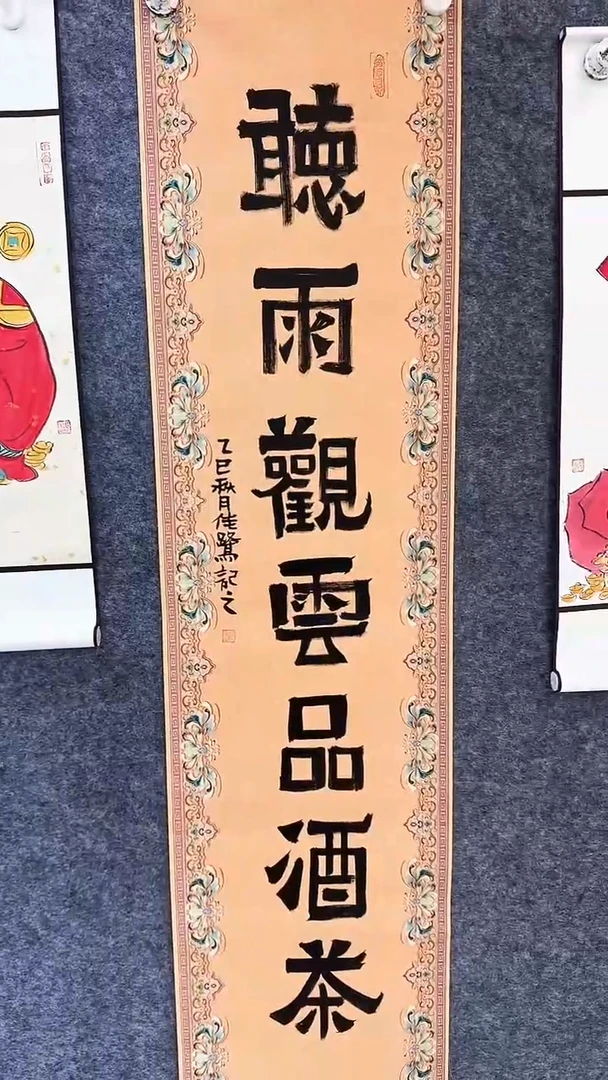 聽雨觀雲品酒茶
乙巳秋月佳鷺記之